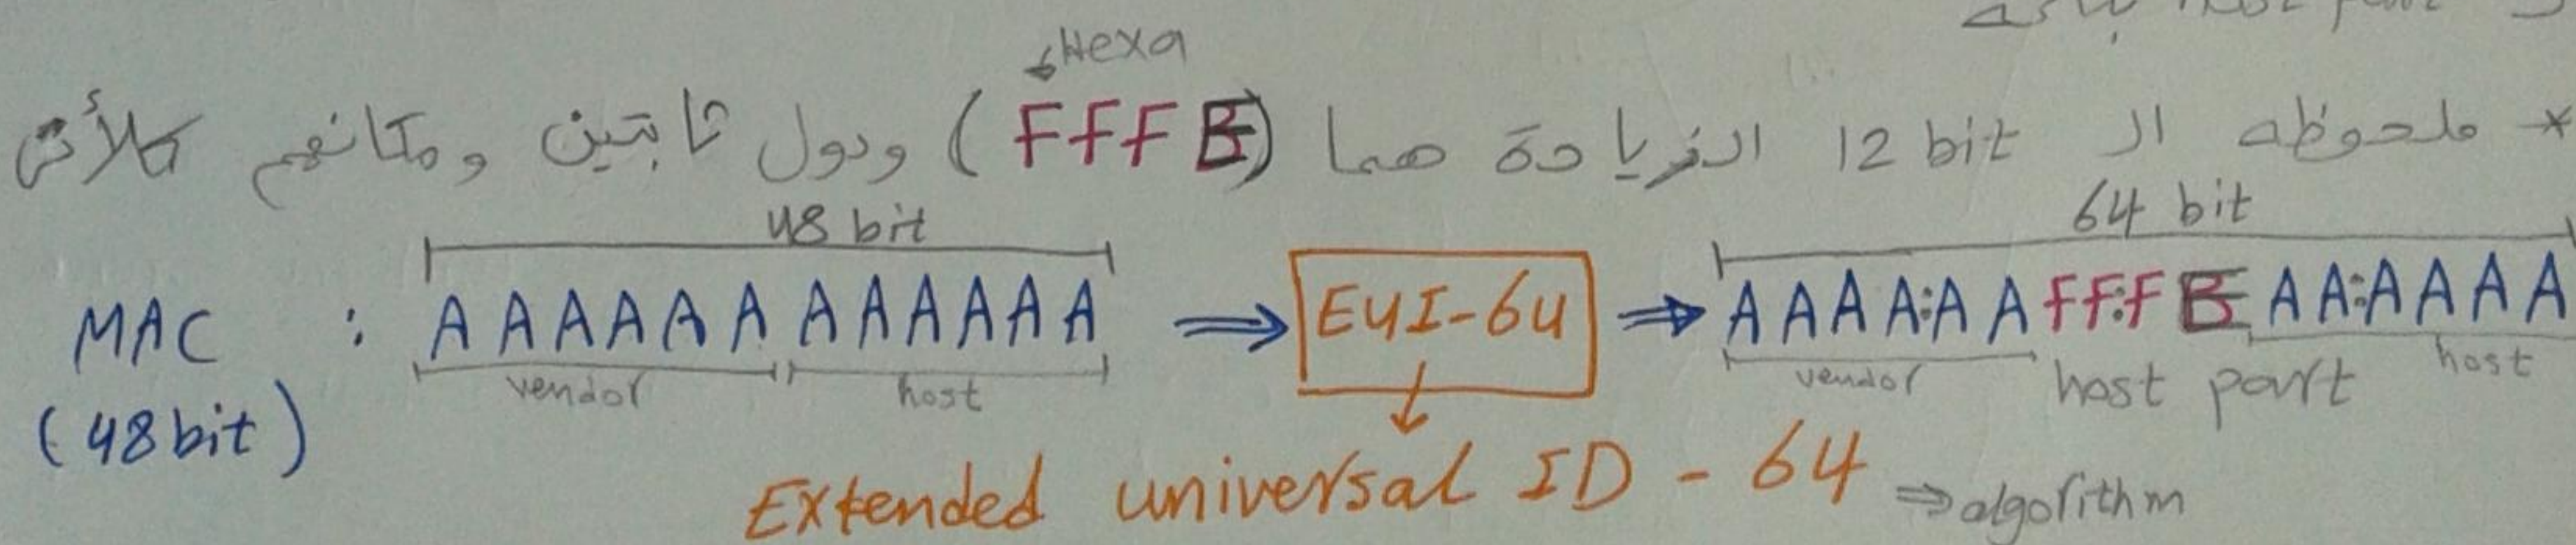 Hexa
* ملحوظه ال 12 bit الزيادة هما (FFF E) ودول ثابتين ومكانهم كالأتى
48 bit
64 bit
MAC : AAAAAA AAAAAA ⇒ EUI-64 ⇒ AAAA:AA FF:F E AA:AAAA
vendor host vendor host part host
(48 bit)
Extended universal ID - 64 ⇒ algorithm